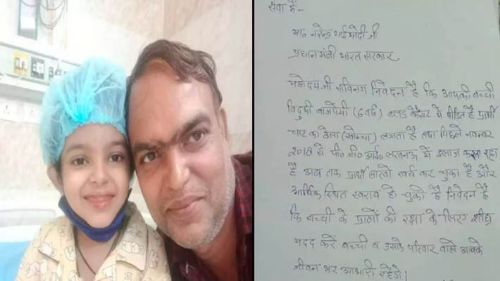 सेवा में-
मा० नरेन्द्र भाई मोदी जी
प्रधानमंत्री भारत सरकार
महोदय जी सविनय निवेदन है कि आपकी बच्ची
बाजपेयी (6 वर्ष) ब्लड कैंसर से पीड़ित है प्रार्थी
चाट का ठेला (खोम्चा) लगाता है तथा पिछले नवम्बर
2018 से पी० जी० आई० लखनऊ में इलाज करा रहा
है अब तक प्रार्थी लाखो खर्च कर चुका है और
आर्थिक स्थित खराब हो चुकी है निवेदन है
कि बच्ची के प्राणों की रक्षा के लिए शीघ्र
मदद करें बच्ची व उसके परिवार वाले आपके
जीवन भर आभारी रहेंगे।